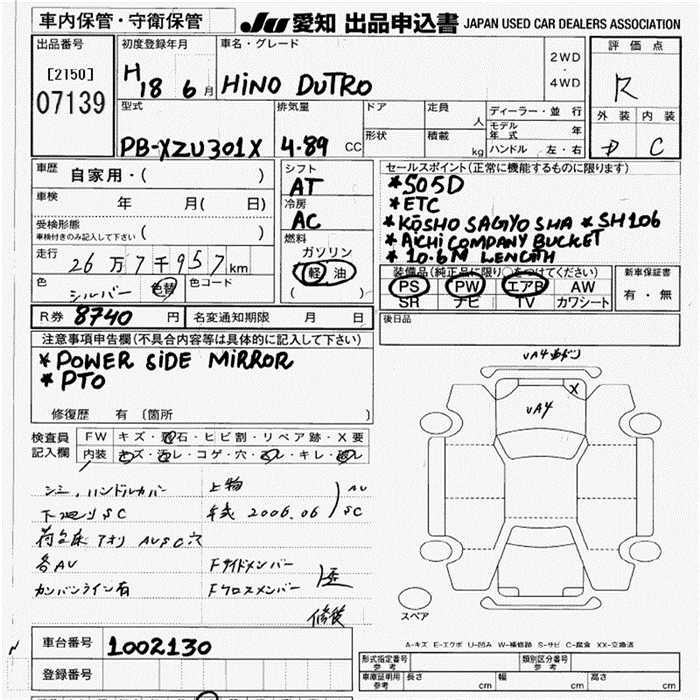 車内保管・守衛保管
JU 愛知 出品申込書 JAPAN USED CAR DEALERS ASSOCIATION
出品番号
[2150]
07139
初度登録年月
H 18 6 月
車名・グレード
HINO DUTRO
2WD
・
4WD
評価点
R
外装 内装
D C
型式
PB-XZU301X
排気量
4.89 CC
ドア
形状
定員
人
積載
kg
ディーラー・並行
モデル年式 年
ハンドル 左・右
車歴
自家用・( )
車検 年 月( 日)
受検形態
車検付きのみ記入して下さい ( )
走行
26万7千957km
色
シルバー 色替
色コード
シフト
AT
冷房
AC
燃料
ガソリン
軽油
( )
セールスポイント(正常に機能するものに限ります)
*S05D
*ETC
*KOSHO SAGYO SHA *SH106
*AICHI COMPANY BUCKET
*10.6M LENGTH
装備品(純正品に限り○をつけてください)
PS PW エアB AW
SR ナビ TV カワシート
新車保証書
有・無
R券 8740 円
名変通知期限 月 日
後日品
注意事項申告欄(不具合内容等は具体的に記入して下さい)
*POWER SIDE MIRROR
*PTO
修復歴 有〔箇所 〕
検査員記入欄
FW キズ・飛石・ヒビ割・リペア跡・X要
内装 キズ・汚レ・コゲ・穴・スレ・キレ・
シミ、ハンドルカバー
上物 AU
下廻りSC
年式 2006.06 SC
荷台床 アオリ AUSC穴
各AU
Fサイドメンバー
カンバンライン有
Fクロスメンバー
修復
UA4
X
スペア
A-キズ E-エクボ U-凹み W-補修跡 S-サビ C-腐食 XX-交換済
車台番号 1002130
登録番号
型式指定番号 参考
類別区分番号 参考
車庫証明用 参考 長さ cm 幅 cm 高さ cm